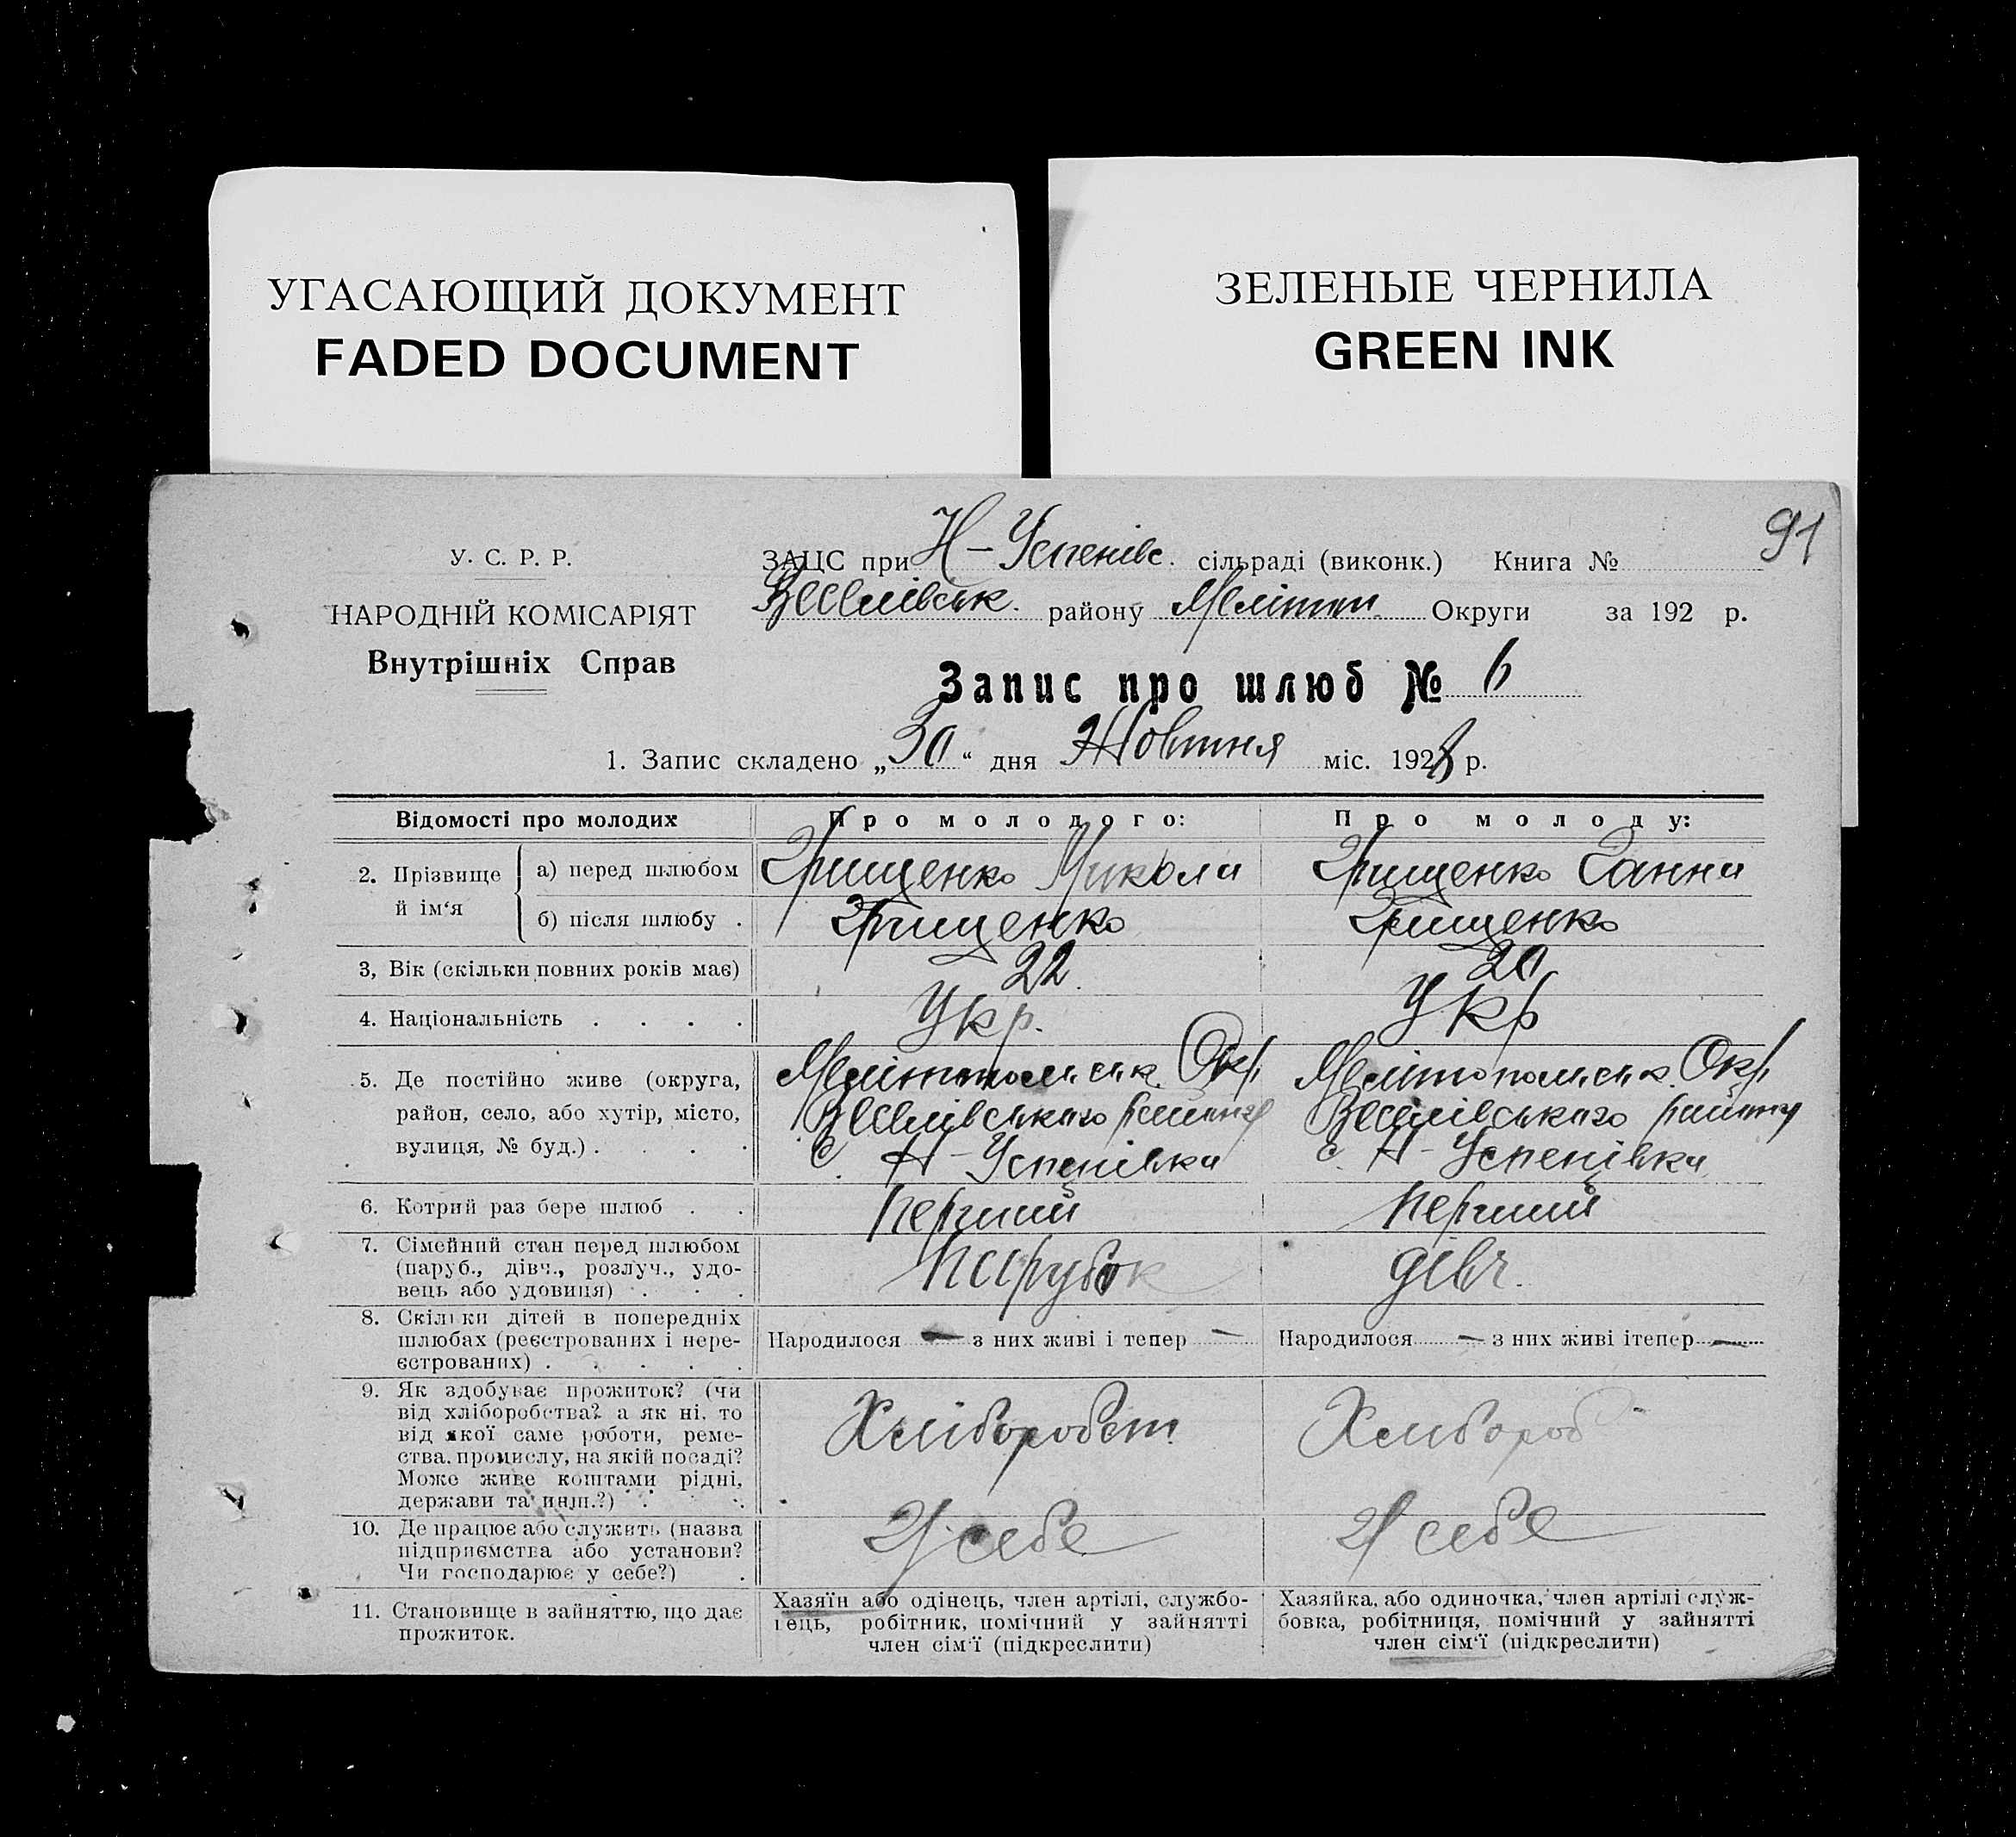 УГАСАЮЩИЙ ДОКУМЕНТ
FADED DOCUMENT
ЗЕЛЕНЫЕ ЧЕРНИЛА
GREEN INK
91
У. С. Р. Р.
НАРОДНІЙ КОМІСАРІЯТ
Внутрішніх Справ
ЗАЦС при Н-Успенівс. сільраді (виконк.) Книга №
Веселівськ. району Мелітоп. Округи за 192 р.
Запис про шлюб № 6
1. Запис складено „30“ дня Жовтня міс. 1928 р.
Відомості про молодих
Про молодого:
Про молоду:
2. Прізвище й ім‘я
а) перед шлюбом
Грищенко Микола
Грищенко Ганна
б) після шлюбу .
Грищенко
Грищенко
3, Вік (скільки повних років має)
22
20
4. Національність . . . .
Укр.
Укр
5. Де постійно живе (округа,
район, село, або хутір, місто,
вулиця, № буд.) . . . .
Мелітопольськ. Окр.
Веселівського району
с. Н-Успенівка
Мелітопольськ. Окр.
Веселівського району
с. Н-Успенівка
6. Котрий раз бере шлюб . .
перший
перший
7. Сімейний стан перед шлюбом
(паруб., дівч., розлуч., удо-
вець або удовиця) . . .
парубок
дівч.
8. Скільки дітей в попередніх
шлюбах (реєстрованих і нере-
єстрованих) . . . . .
Народилося — з них живі і тепер —
Народилося — з них живі ітепер —
9. Як здобуває прожиток? (чи
від хліборобства? а як ні, то
від якої саме роботи, реме-
ства, промислу, на якій посаді?
Може живе коштами рідні,
держави та инш.?) . .
Хліборобст.
Хлібороб
10. Де працює або служить (назва
підприємства або установи?
Чи господарює у себе?) .
У себе
У себе
11. Становище в зайняттю, що дає
прожиток.
Хазяїн або одінець, член артілі, службо-
вець, робітник, помічний у зайнятті
член сім‘ї (підкреслити)
Хазяйка, або одиночка, член артілі служ-
бовка, робітниця, помічний у зайнятті
член сім‘ї (підкреслити)